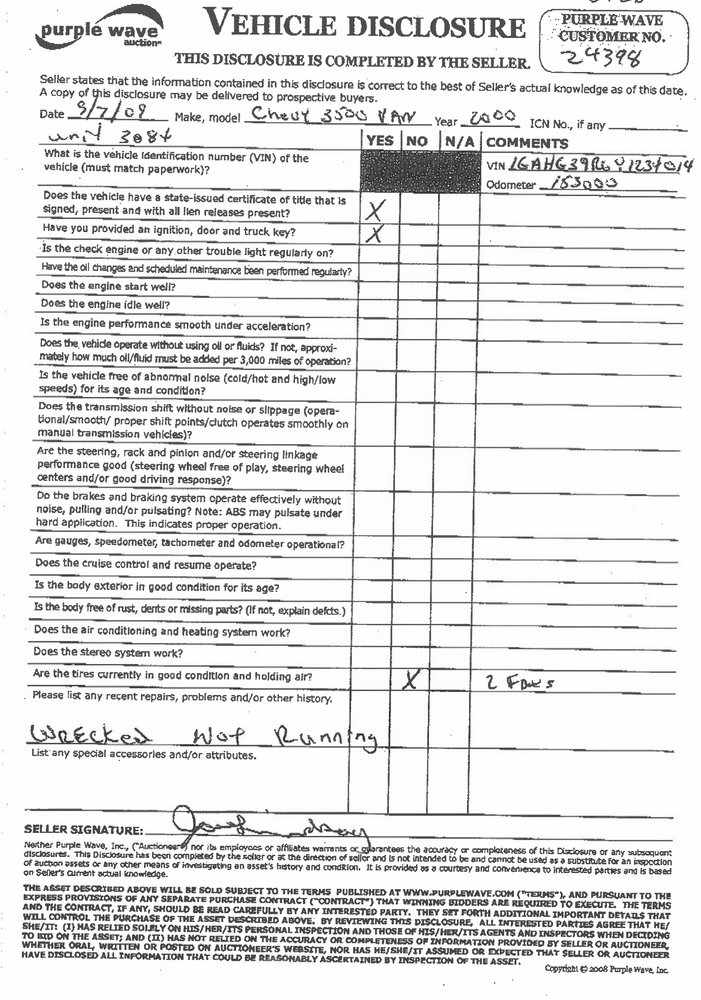 purple wave
auction
VEHICLE DISCLOSURE
PURPLE WAVE
CUSTOMER NO.
24398
THIS DISCLOSURE IS COMPLETED BY THE SELLER.
Seller states that the information contained in this disclosure is correct to the best of Seller's actual knowledge as of this date.
A copy of this disclosure may be delivered to prospective buyers.
Date 9/7/09 Make, model Chevy 3500 VAN Year 2000 ICN No., if any
unit 3084
YES NO N/A COMMENTS
What is the vehicle identification number (VIN) of the
vehicle (must match paperwork)?
VIN
Odometer 153000
Does the vehicle have a state-issued certificate of title that is
signed, present and with all lien releases present? X
Have you provided an ignition, door and truck key? X
Is the check engine or any other trouble light regularly on?
Have the oil changes and scheduled maintenance been performed regularly?
Does the engine start well?
Does the engine idle well?
Is the engine performance smooth under acceleration?
Does the vehicle operate without using oil or fluids? If not, approxi-
mately how much oil/fluid must be added per 3,000 miles of operation?
Is the vehicle free of abnormal noise (cold/hot and high/low
speeds) for its age and condition?
Does the transmission shift without noise or slippage (opera-
tional/smooth/ proper shift points/clutch operates smoothly on
manual transmission vehicles)?
Are the steering, rack and pinion and/or steering linkage
performance good (steering wheel free of play, steering wheel
centers and/or good driving response)?
Do the brakes and braking system operate effectively without
noise, pulling and/or pulsating? Note: ABS may pulsate under
hard application. This indicates proper operation.
Are gauges, speedometer, tachometer and odometer operational?
Does the cruise control and resume operate?
Is the body exterior in good condition for its age?
Is the body free of rust, dents or missing parts? (If not, explain defcts.)
Does the air conditioning and heating system work?
Does the stereo system work?
Are the tires currently in good condition and holding air? X 2
Please list any recent repairs, problems and/or other history.
Wrecked Not Running
List any special accessories and/or attributes.
SELLER SIGNATURE:
Neither Purple Wave, Inc., ("Auctioneer") nor its employees or affiliates warrants or guarantees the accuracy or completeness of this Disclosure or any subsequent
disclosures. This Disclosure has been completed by the seller or at the direction of seller and is not intended to be and cannot be used as a substitute for an inspection
of auction assets or any other means of investigating an asset's history and condition. It is provided as a courtesy and convenience to interested parties and is based
on Seller's current actual knowledge.
THE ASSET DESCRIBED ABOVE WILL BE SOLD SUBJECT TO THE TERMS PUBLISHED AT WWW.PURPLEWAVE.COM ("TERMS"), AND PURSUANT TO THE
EXPRESS PROVISIONS OF ANY SEPARATE PURCHASE CONTRACT ("CONTRACT") THAT WINNING BIDDERS ARE REQUIRED TO EXECUTE. THE TERMS
AND THE CONTRACT, IF ANY, SHOULD BE READ CAREFULLY BY ANY INTERESTED PARTY. THEY SET FORTH ADDITIONAL IMPORTANT DETAILS THAT
WILL CONTROL THE PURCHASE OF THE ASSET DESCRIBED ABOVE. BY REVIEWING THIS DISCLOSURE, ALL INTERESTED PARTIES AGREE THAT HE/
SHE/IT: (I) HAS RELIED SOLELY ON HIS/HER/ITS PERSONAL INSPECTION AND THOSE OF HIS/HER/ITS AGENTS AND INSPECTORS WHEN DECIDING
TO BID ON THE ASSET; AND (II) HAS NOT RELIED ON THE ACCURACY OR COMPLETENESS OF INFORMATION PROVIDED BY SELLER OR AUCTIONEER,
WHETHER ORAL, WRITTEN OR POSTED ON AUCTIONEER'S WEBSITE, NOR HAS HE/SHE/IT ASSUMED OR EXPECTED THAT SELLER OR AUCTIONEER
HAVE DISCLOSED ALL INFORMATION THAT COULD BE REASONABLY ASCERTAINED BY INSPECTION OF THE ASSET.
Copyright © 2008 Purple Wave, Inc.